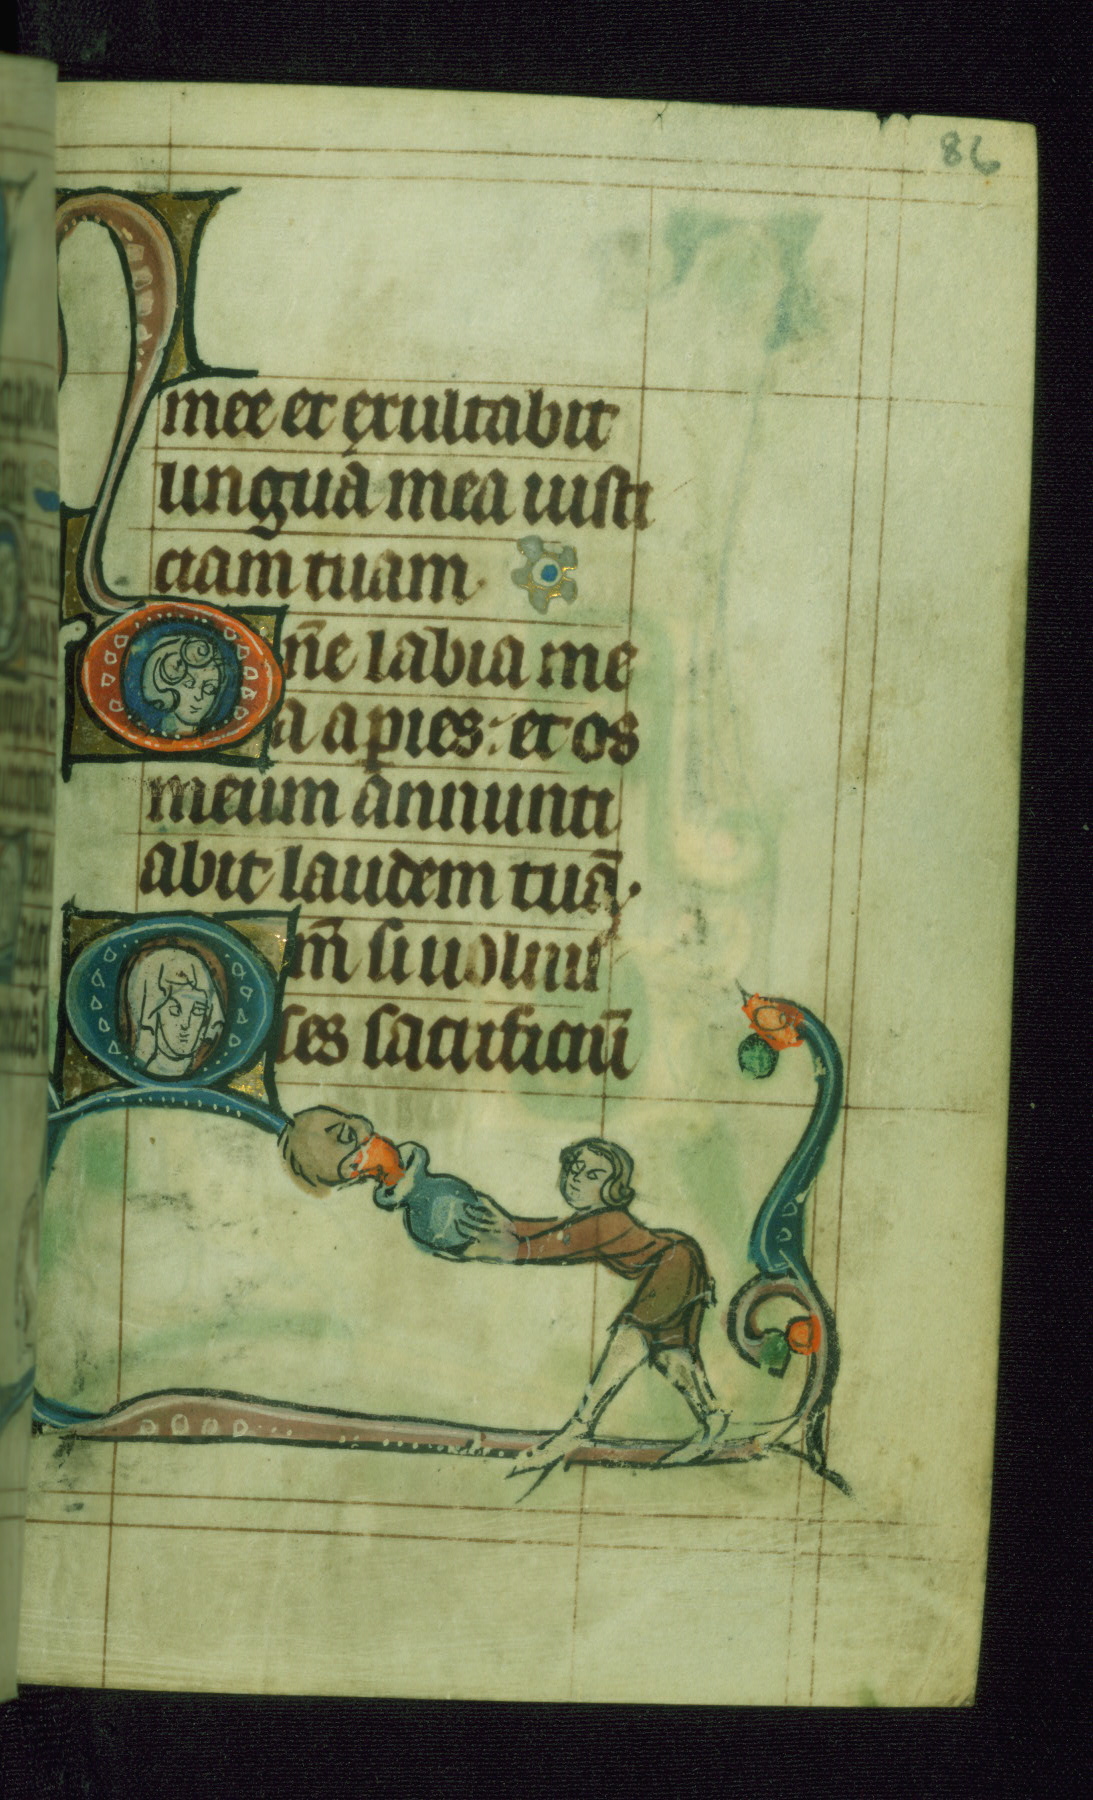 86
mee et exultabit
lingua mea iusti
ciam tuam
Dn̄e labia me
a apies: et os
meum annunti
abit laudem tuā.
Qm̄ si uoluis
ses sacrificiū